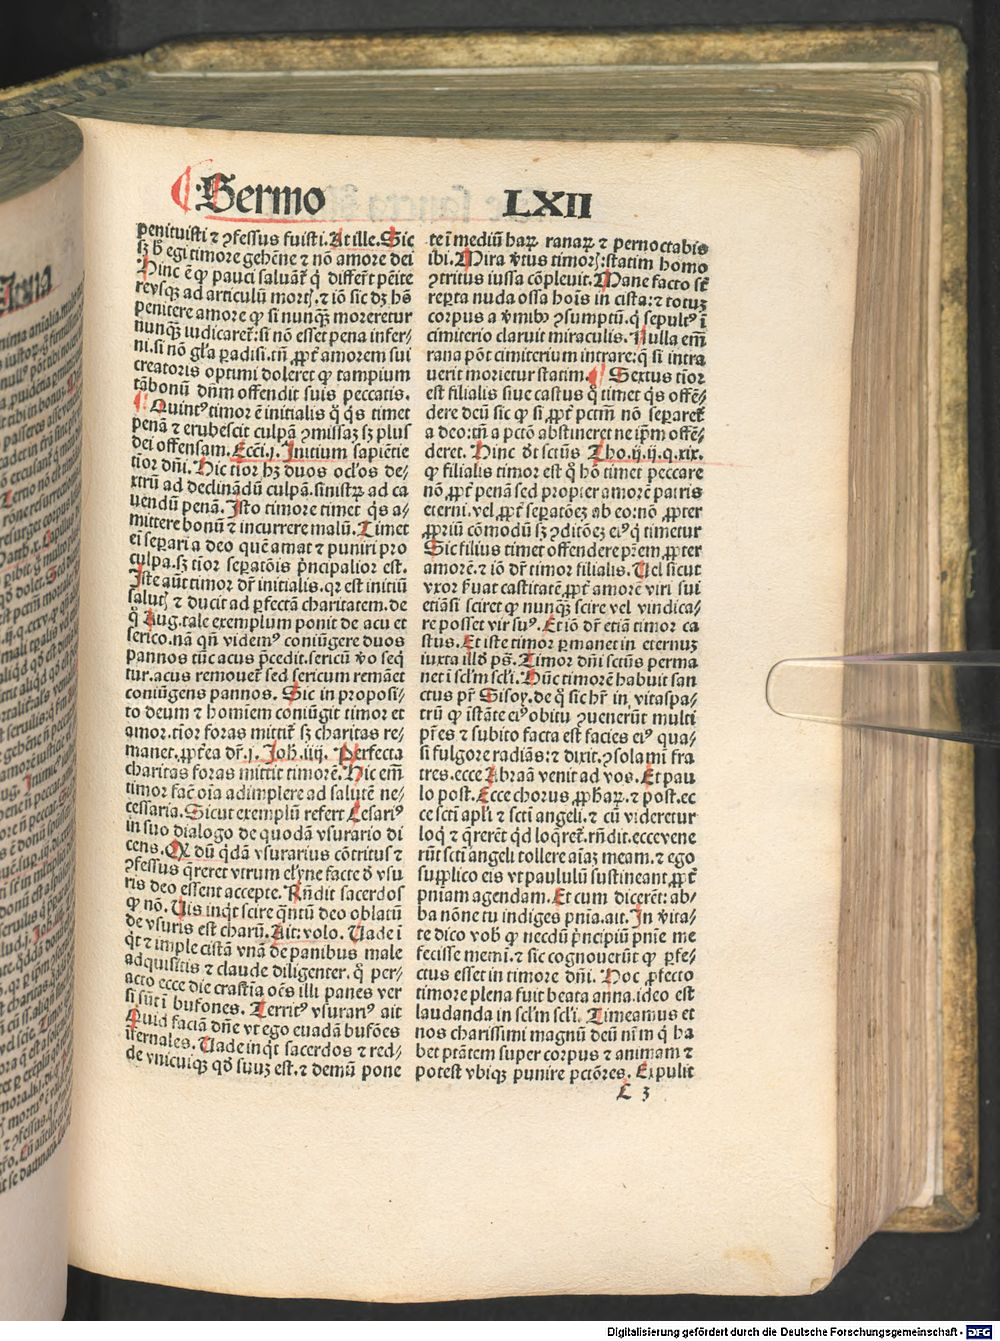 Sermo LXII
penituisti ⁊ ꝯfessus fuisti. At ille. Sic
sꝫ h̄ egi timore gehēne ⁊ nō amore dei
Hinc ē ꝙ pauci saluāt̄ q̇ differt pēite
revsqꝫ ad articulum mortꝭ. ⁊ iō sic dꝫ hō
penitere amore ꝙ si nunqꝫ moreretur
nunqꝫ iudicaret̄: si nō esset pena infer⸗
ni. si nō gl̄a ꝑadisi. tn̄ ꝓpt̄ amorem sui
creatoris optimi doleret ꝙ tampium
tābonū dn̄m offendit suis peccatis.
Quintꝰ timor ē initialis q̇ q̇s timet
penā ⁊ erubescit culpā ꝯmissaꝫ sꝫ plus
dei offensam. Ecci. j. Initium sapiētie
tior dn̄i. Hic tior hꝫ duos oclos de⸗
xtrū ad declinādū culpā. sinistꝝ ad ca
uendū penā. Isto timore timet q̇s a⸗
mittere bonū ⁊ incurrere malū. Timet
ei seꝑari a deo quē amat ⁊ puniri pro
culpa. sꝫ tior seꝑatōis p̄ncipalior est.
Iste aūt timor dr̄ initialis. qꝛ est initiū
salutꝭ ⁊ ducit ad ꝑfectā charitatem. de
q̊ Aug. tale exemplum ponit de acu et
serico. nā qn̄ videmꝰ coniūgere duos
pannos tūc acus p̄cedit. sericū v̊o seq̇
tur. acus remouet̄ sed sericum remāet
coniūgens pannos. Sic in proposi⸗
to deum ⁊ homiem coniūgit timor et
amor. tior foras mittit̄ sꝫ charitas re⸗
manet. ꝓpt̄ea dr̄. j. Joh. iiij. Perfecta
charitas foras mittit timorē. Hic em̄
timor fac̄ oīa adimplere ad salutē ne⸗
cessaria. Sicut exemplū refert Cesariꝰ
in suo dialogo de quodā vsurario di
cens. Qꝫ dū q̇dā vsurarius cōtritus ⁊
ꝯfessus q̄reret vtrum elyne facte d̄ vsu
ris deo essent accepte. Rn̄dit sacerdos
ꝙ nō. Uis inq̇t scire q̄ntū deo oblatū
de vsuris est charū. Ait: volo. Uade ī
q̇t ⁊ imple cistā vnā de panibus male
adquisitis ⁊ claude diligenter. q̊ per⸗
acto ecce die crastīa oēs illi panes ver
si sūt ī bufones. Territꝰ vsurariꝰ ait
Quid faciā dn̄e vt ego euadā bufōes
īfernales. Uade inq̇t sacerdos ⁊ red⸗
de vnicuiqꝫ qd̄ suuꝫ est. ⁊ demū pone
te ī mediū haꝝ ranaꝝ ⁊ pernoctabis
ibi. Mira v̊tus timorꝭ: statim homo
ꝯtritus iussa cōpleuit. Mane facto st̄
reꝑta nuda ossa hoīs in cista: ⁊ totuꝫ
corpus a vmibꝰ ꝯsumptū. q̇ sepultꝰ ī
cimiterio claruit miraculis. Nulla em̄
rana pōt cimiterium intrare: q̇ si intra
uerit morietur statim. Sextus tīor
est filialis siue castus q̊ timet q̇s offē⸗
dere deū sic ꝙ si ꝓpt̄ pctm̄ nō seꝑaret̄
a deo: tn̄ a pctō abstineret ne ip̄m offē⸗
deret. Hinc dt̄ sctūs Tho. ij. ij. q. xix.
ꝙ filialis timor est q̊ hō timet peccare
nō ꝓpt̄ penā sed propter amorē patris
eterni. vel ꝓpt̄ seꝑatōeꝫ ab eo: nō ꝓpter
ꝓpriū cōmodū sꝫ ꝯditōeꝫ eiꝰ q̇ timetur
Sic filius timet offendere pr̄em ꝓpter
amorē. ⁊ iō dr̄ timor filialis. Uel sicut
vxor f̄uat castitatē ꝓpt̄ amorē viri sui
etiāsi sciret ꝙ nunqꝫ scire vel vindica⸗
re posset vir suꝰ. Et iō dr̄ etiā timor ca
stus. Et iste timor ꝑmanet in eternuꝫ
iuxta illd̄ ps̄. Timor dn̄i sctūs perma
net ī sc̄lm sc̄li. Hūc timorē habuit san
ctus pr̄ Sisoy. de q̊ sic hr̄ in vitaspa⸗
trū ꝙ īstāte eiꝰ obitu ꝯuenerūt multi
pr̄es ⁊ subito facta est facies eiꝰ qua⸗
si fulgore radiās: ⁊ dixit. ꝯsolami fra
tres. ecce Abraā venit ad vos. Et pau
lo post. Ecce chorus ꝓphaꝝ. ⁊ post. ec
ce scti apl̄i ⁊ scti angeli. ⁊ cū videretur
loqͥ ⁊ q̄rerēt q̇d loq̄ret̄. rn̄dit. ecce vene
rūt scti angeli tollere aīaꝫ meam. ⁊ ego
supplico eis vt paululū sustineant ꝓpt̄
pniam agendam. Et cum dicerēt: ab⸗
ba nōne tu indiges pnia. ait. In vita⸗
te dico vob̄ ꝙ necdū p̄ncipiū pnīe me
fecisse memi. ⁊ sic cognouerūt ꝙ ꝑfe⸗
ctus esset in timore dn̄i. Hoc ꝑfecto
timore plena fuit beata anna. ideo est
laudanda in sc̄lm sc̄li. Timeamus et
nos charissimi magnū deū nr̄m q̇ ha
bet ptātem super corpus ⁊ animam ⁊
potest vbiqꝫ punire pctōres. Ei pulit
L 3
Digitalisierung gefördert durch die Deutsche Forschungsgemeinschaft - DFG